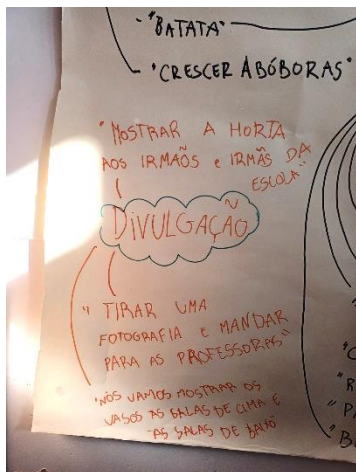 - "BATATA"
- "CRESCER ABÓBORAS"
"MOSTRAR A HORTA
AOS IRMÃOS e IRMÃS DA
ESCOLA"
DIVULGAÇÃO
"TIRAR UMA
FOTOGRAFIA E MANDAR
PARA AS PROFESSORAS"
"NÓS VAMOS MOSTRAR OS
VASOS ÀS SALAS DE CIMA E
ÀS SALAS DE BAIXO"